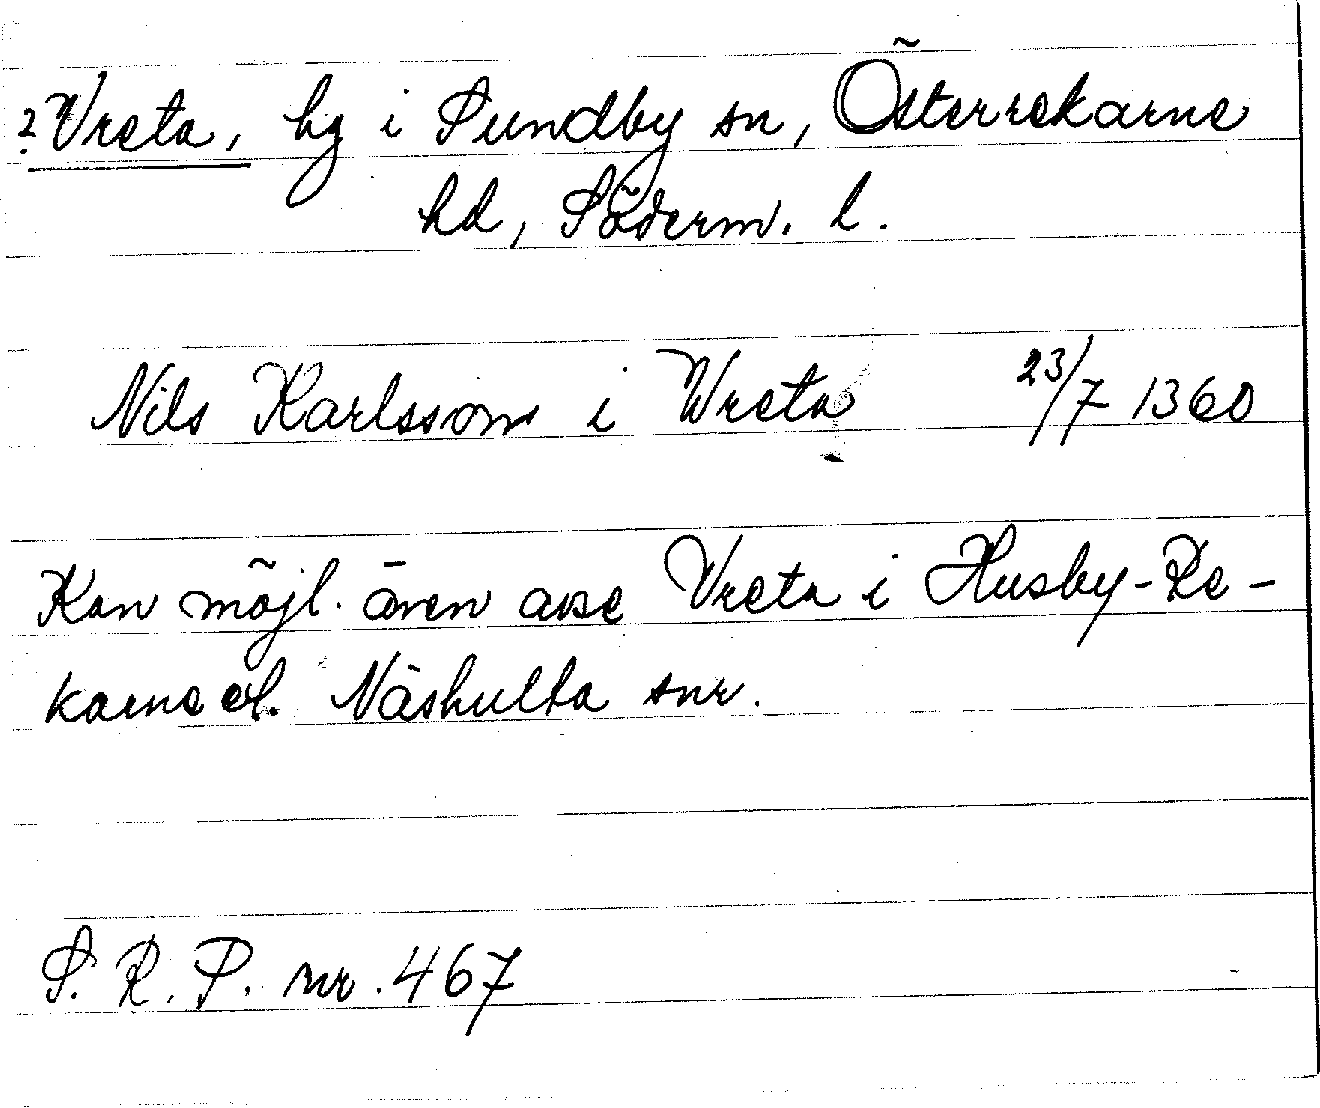 ? Vreta, hg i Sundby sn, Österrekarne
hd, Söderm. l.
Nils Karlsson i Wreta 23/7 1360
Kan möjl. även avse Vreta i Husby-Re-
karne el. Näshulta snr.
S. R. P. nr. 467